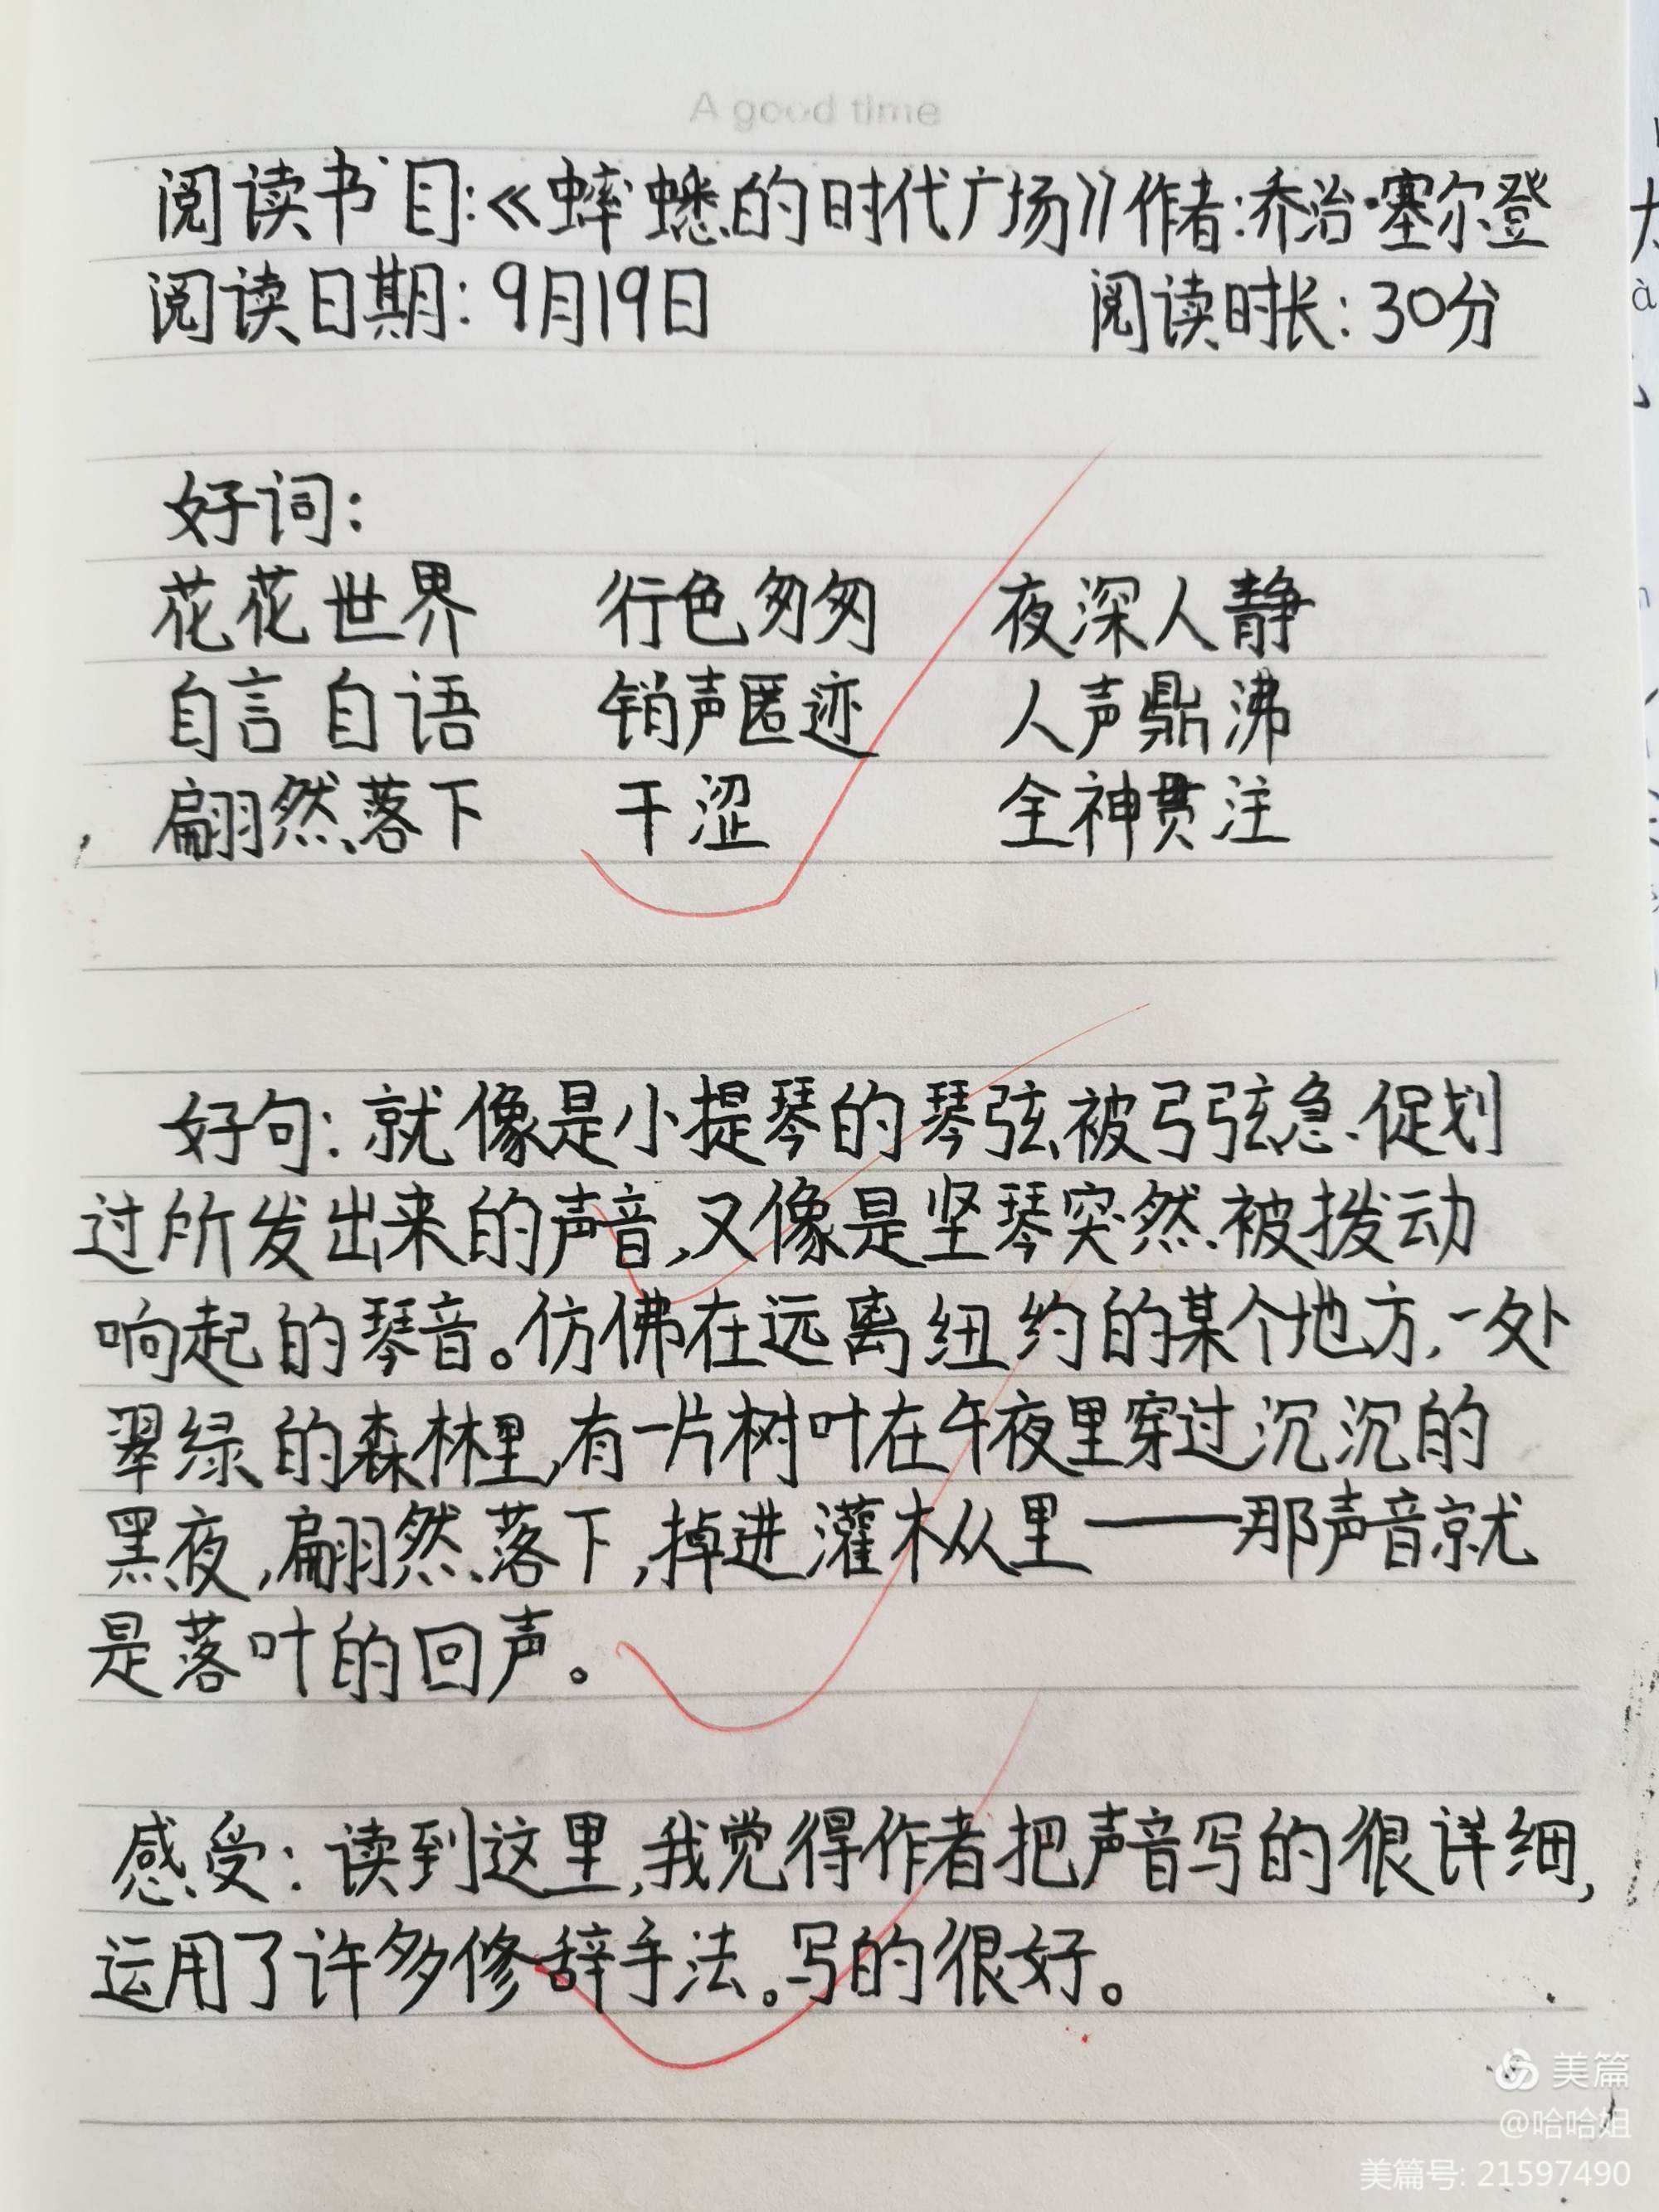 A good time
阅读书目:《蟋蟀的时代广场》作者:乔治·塞尔登
阅读日期:9月19日 阅读时长:30分
好词:
花花世界 行色匆匆 夜深人静
自言自语 销声匿迹 人声鼎沸
翩然落下 干涩 全神贯注
好句:就像是小提琴的琴弦被弓弦急促划
过所发出来的声音,又像是竖琴突然被拨动
响起的琴音。仿佛在远离纽约的某个地方,一处
翠绿的森林里,有一片树叶在午夜里穿过沉沉的
黑夜,翩然落下,掉进灌木从里——那声音就
是落叶的回声。
感受:读到这里,我觉得作者把声音写的很详细,
运用了许多修辞手法。写的很好。
美篇
@哈哈姐
美篇号: 21597490